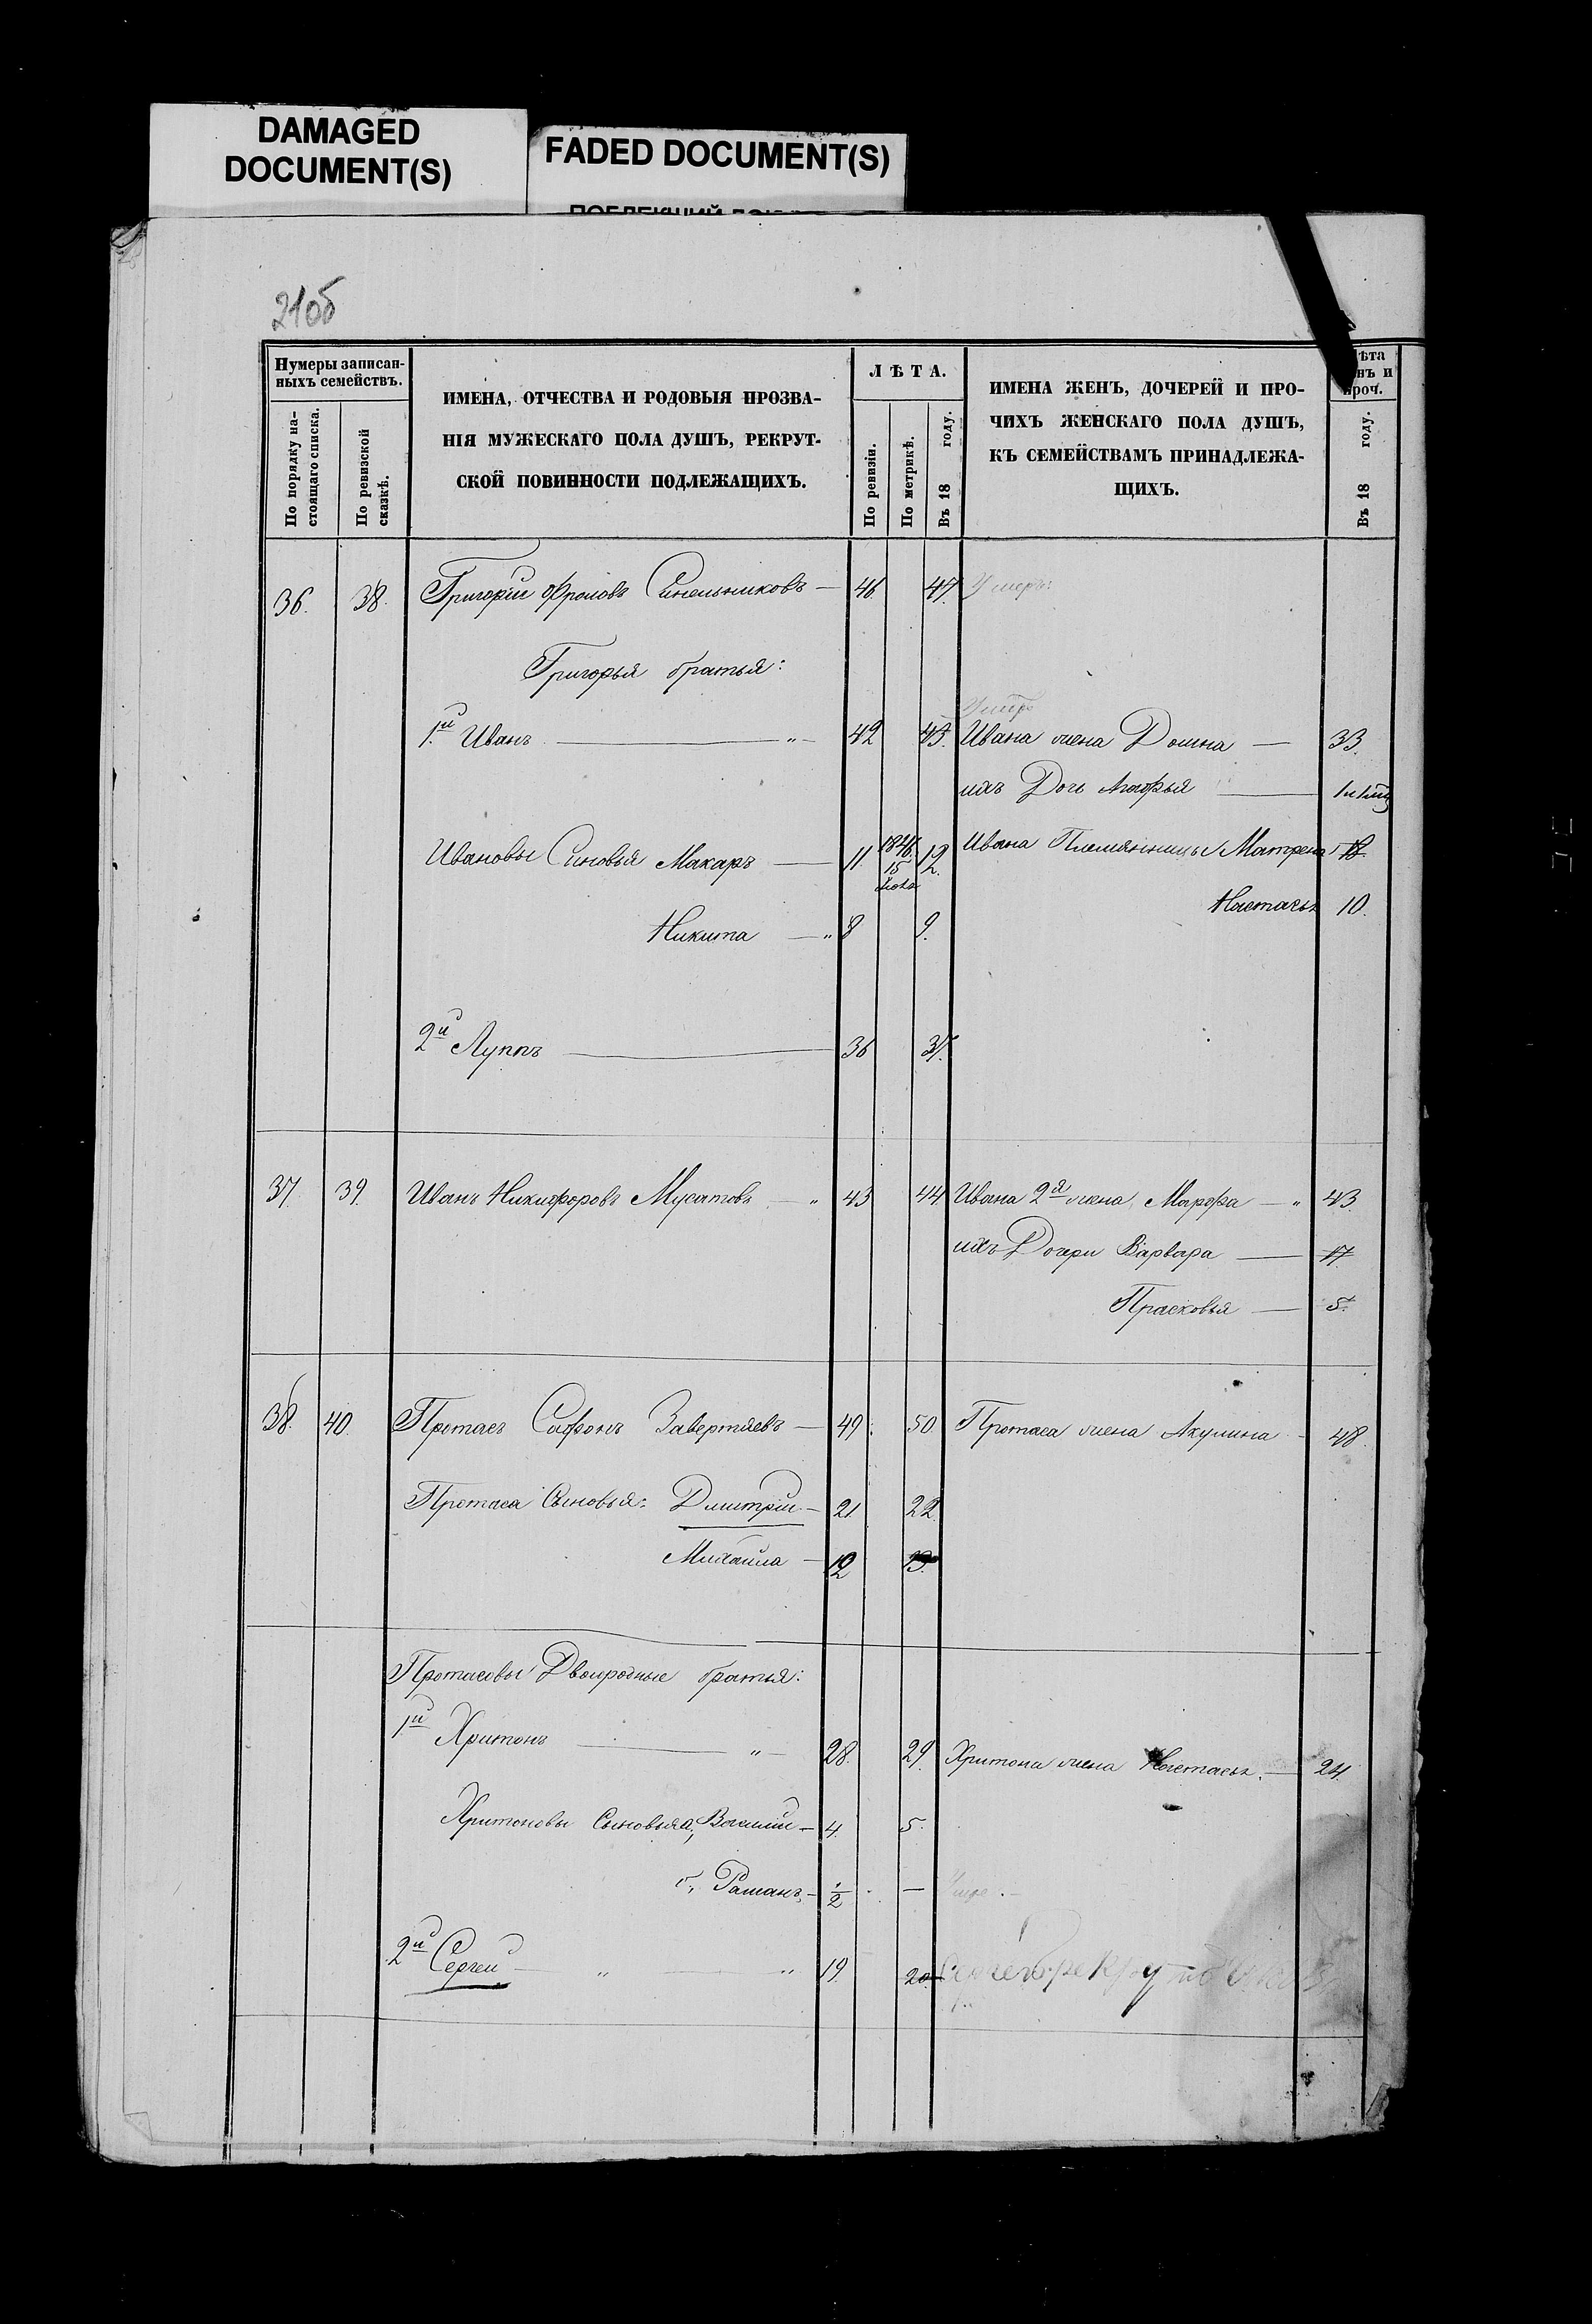 DAMAGED
DOCUMENT(S)
FADED DOCUMENT(S)
21об
Нумеры записан-
ныхъ семействъ.
По порядку на-
стоящаго списка.
По ревизской
сказкѣ.
ИМЕНА, ОТЧЕСТВА И РОДОВЫЯ ПРОЗВА-
НІЯ МУЖЕСКАГО ПОЛА ДУШЪ, РЕКРУТ-
СКОЙ ПОВИННОСТИ ПОДЛЕЖАЩИХЪ.
ЛѢТА.
По ревизіи.
По метрикѣ.
Въ 18 году.
ИМЕНА ЖЕНЪ, ДОЧЕРЕЙ И ПРО-
ЧИХЪ ЖЕНСКАГО ПОЛА ДУШЪ,
КЪ СЕМЕЙСТВАМЪ ПРИНАДЛЕЖА-
ЩИХЪ.
ѣта
нъ и
проч.
Въ 18 году.
36. 38. Григорій Фроловъ Синельниковъ — 46 47. Умеръ.
Григорья братья:
Умеръ
1.й Иванъ — " — 42 43. Ивана жена Домна — 33.
ихъ Дочь Агафья —
Ивановы Сыновья Макаръ — 11 1846. 15 12. Ивана Племянницы Матрена 18.
Настасья 10.
Никита — " 8 9.
2й Луппъ — 36 37.
37. 39. Иванъ Никифоровъ Мусатовъ — " 43 44. Ивана 2я жена Марфа — " 43.
ихъ Дочери Варвара — 17.
Прасковья — 5.
38. 40. Протасъ Сафонъ Завертяевъ — 49. 50. Протаса жена Акулина — 48.
Протаса Сыновья: Дмитрій — 21 22.
Михайла — 12 13.
Протасовы Двоиродные братья:
1й Хритонъ — " — 28. 29. Хритона жена Настасья. — 24.
Хритоновы Сыновья а, Василій — 4. 5.
б, Раманъ — 1/2 —
2й Сергей — " — " 19. 20.